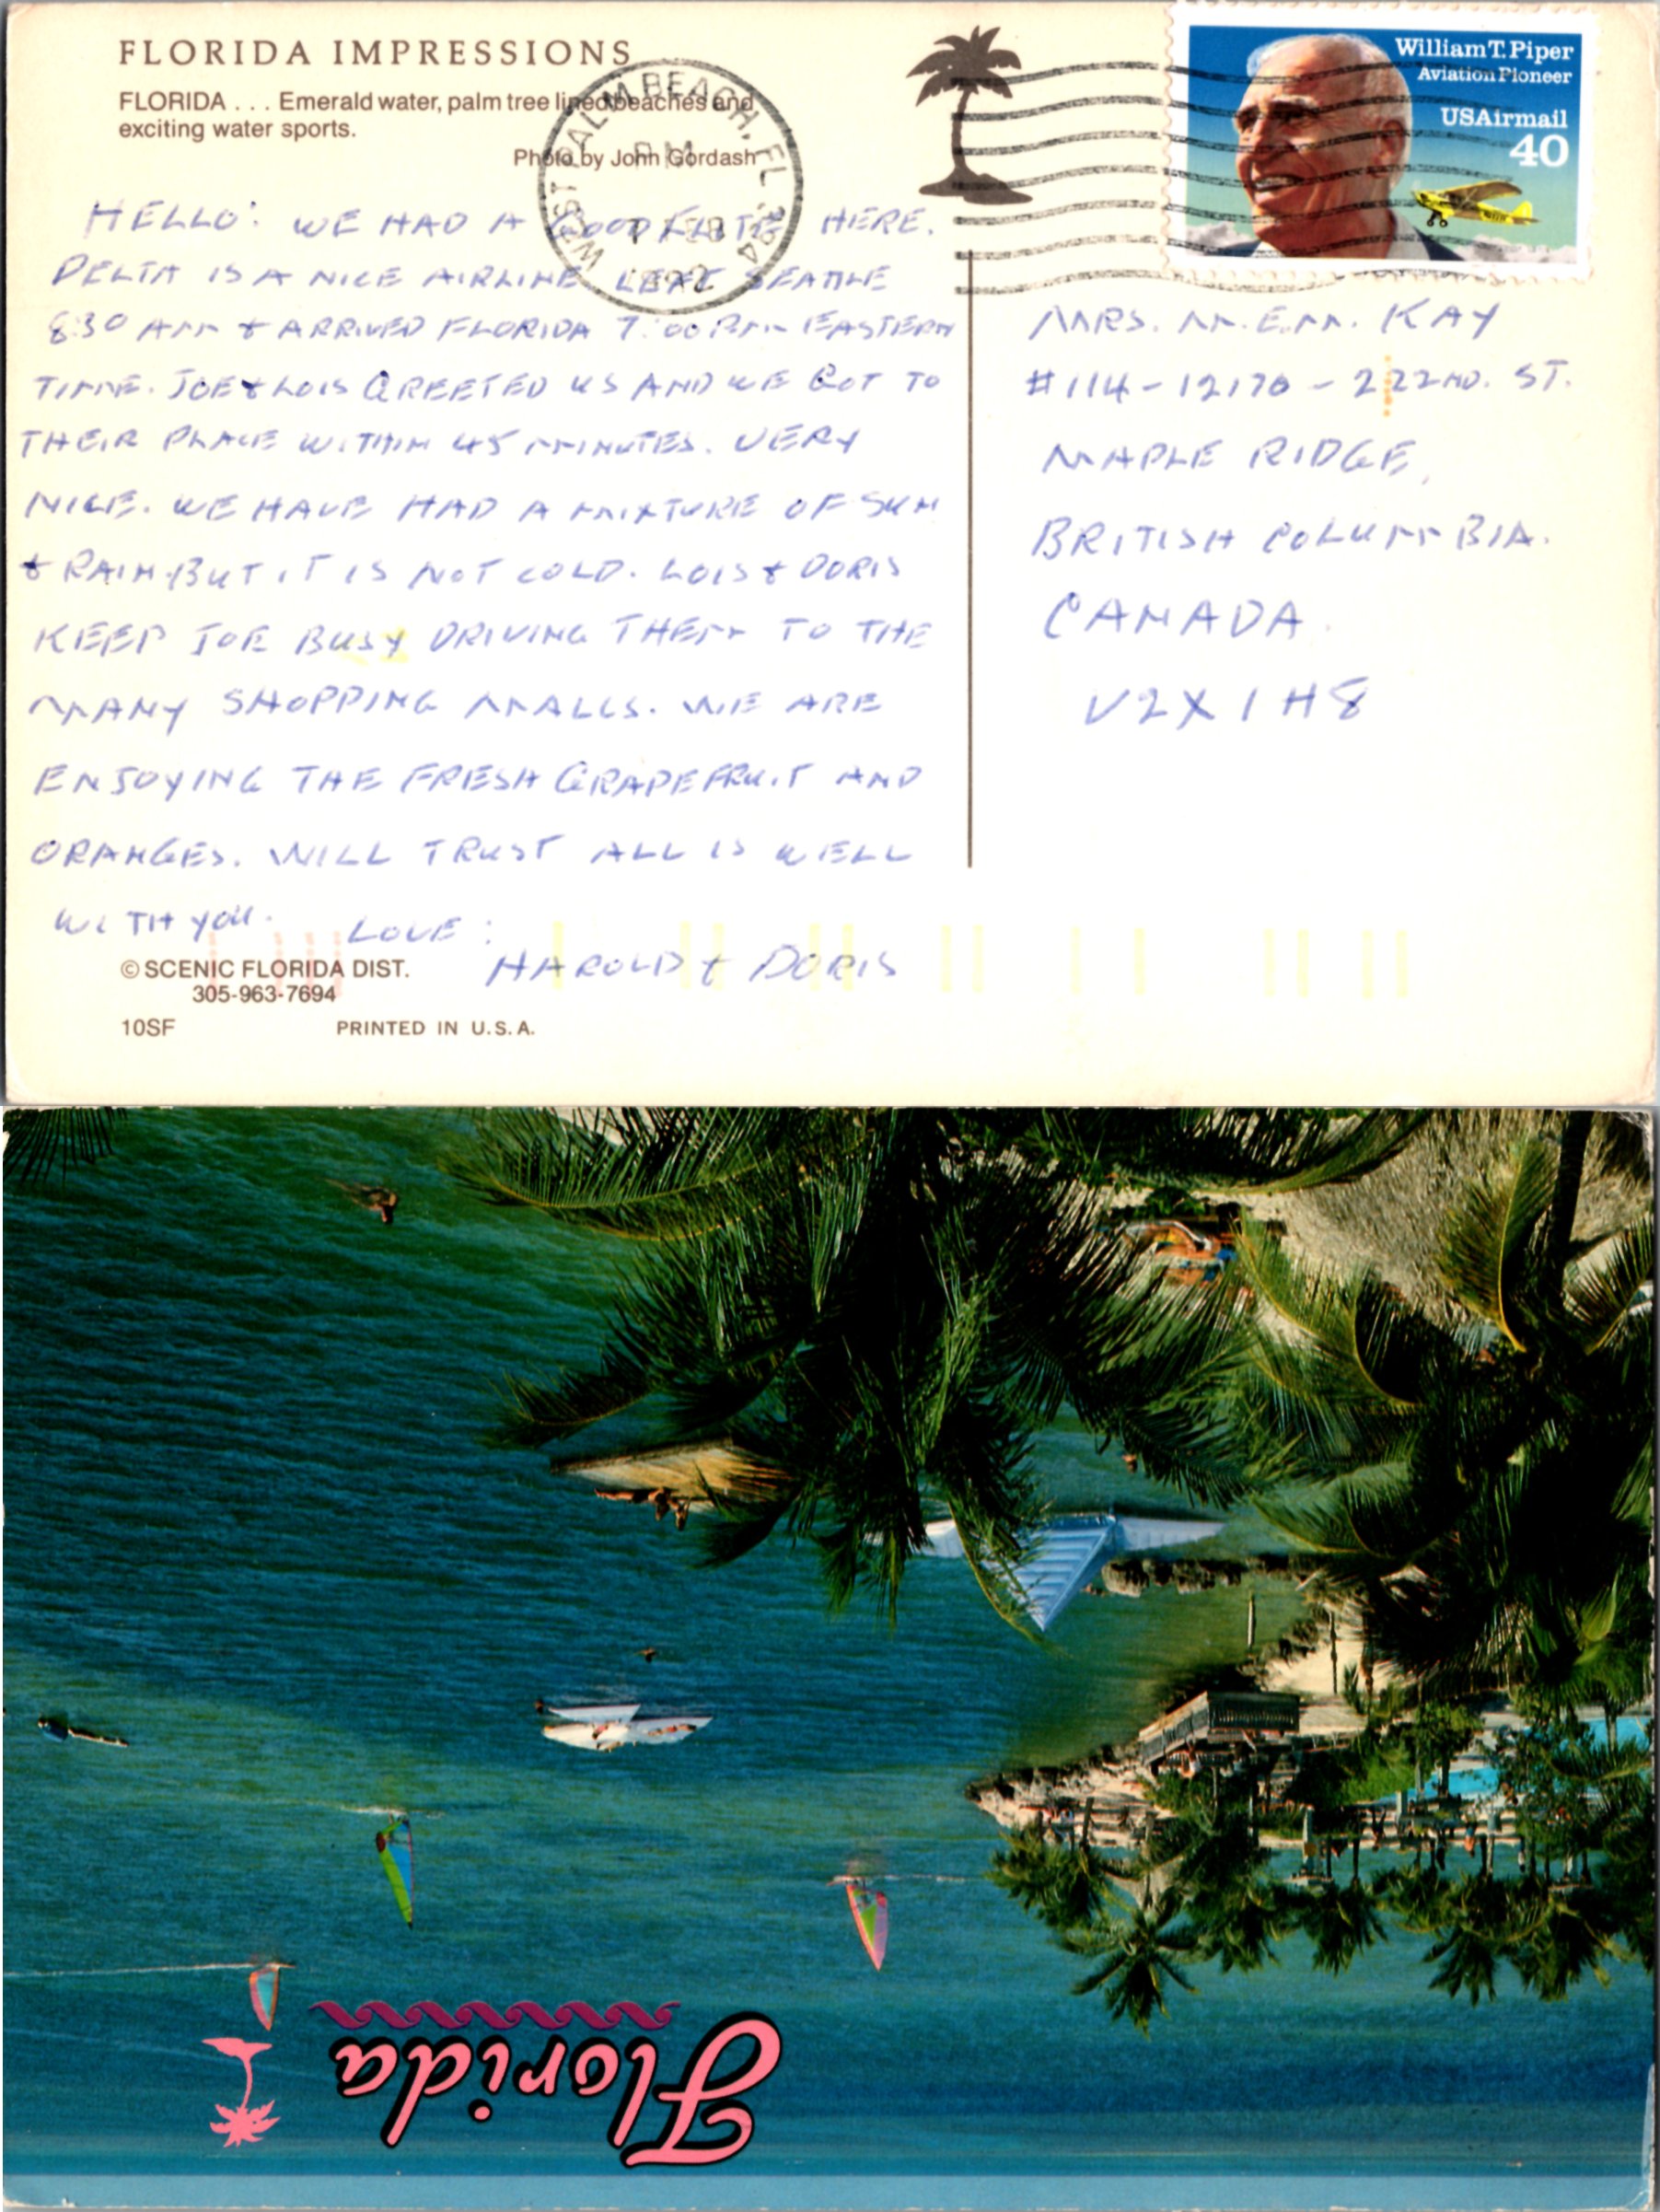 FLORIDA IMPRESSIONS
FLORIDA . . . Emerald water, palm tree lined beaches and
exciting water sports.
Photo by John Gordash
WEST PALM BEACH, FL 334
PM
1992
William T. Piper
Aviation Pioneer
USAirmail
40
HELLO: WE HAD A GOOD FLITE HERE.
DELTA IS A NICE AIRLINE LEFT SEATTLE
8:30 AM & ARRIVED FLORIDA 7:00 PM EASTERN
TIME. JOE & LOIS GREETED US AND WE GOT TO
THEIR PLACE WITHIN 45 MINUTES. VERY
NICE. WE HAVE HAD A MIXTURE OF SUN
& RAIN. BUT IT IS NOT COLD. LOIS & DORIS
KEEP JOE BUSY DRIVING THEM TO THE
MANY SHOPPING MALLS. WE ARE
ENJOYING THE FRESH GRAPEFRUIT AND
ORANGES. WILL TRUST ALL IS WELL
WITH YOU. LOVE:
HAROLD & DORIS
MRS. M.E.M. KAY
#114-12170-222ND. ST.
MAPLE RIDGE,
BRITISH COLUMBIA.
CANADA.
V2X 1H8
© SCENIC FLORIDA DIST.
305-963-7694
10SF PRINTED IN U.S.A.
Florida